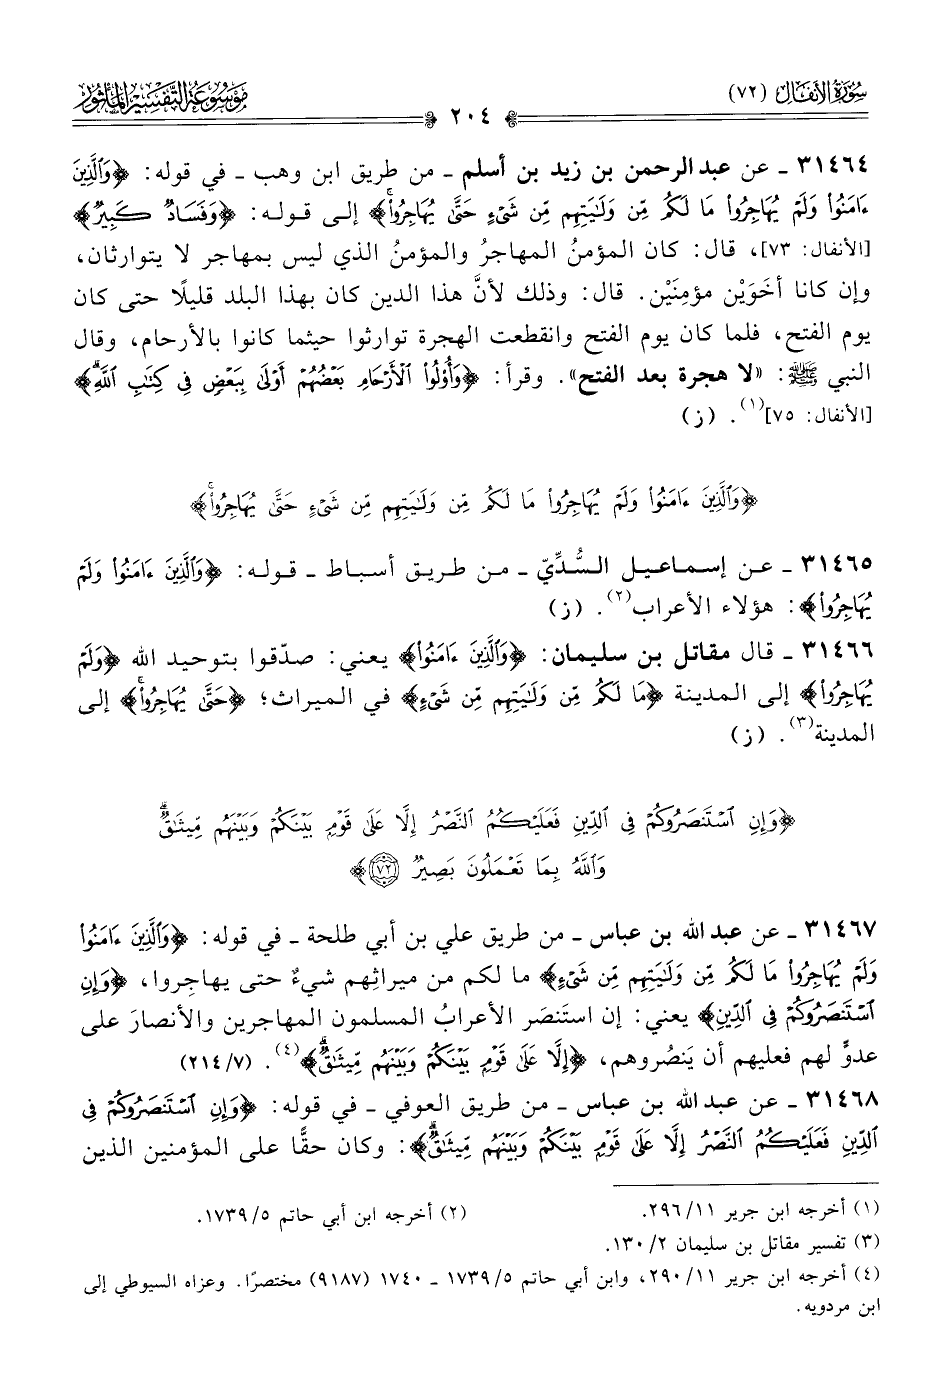 سورة الأنفال (٧٢)
موسوعة التفسير المأثور
٢٠٤
٣١٤٦٤ ـ عن عبد الرحمن بن زيد بن أسلم ـ من طريق ابن وهب ـ في قوله: ﴿وَٱلَّذِينَ
ءَامَنُوا۟ وَلَمْ يُهَاجِرُوا۟ مَا لَكُم مِّن وَلَـٰيَتِهِم مِّن شَىْءٍ حَتَّىٰ يُهَاجِرُوا۟ۚ﴾ إلى قوله: ﴿وَفَسَادٌ كَبِيرٌ﴾
[الأنفال: ٧٣]، قال: كان المؤمنُ المهاجرُ والمؤمنُ الذي ليس بمهاجر لا يتوارثان،
وإن كانا أخَوَيْن مؤمِنَيْن. قال: وذلك لأنَّ هذا الدين كان بهذا البلد قليلًا حتى كان
يوم الفتح، فلما كان يوم الفتح وانقطعت الهجرة توارثوا حيثما كانوا بالأرحام، وقال
النبي ﷺ: «لا هجرة بعد الفتح». وقرأ: ﴿وَأُو۟لُوا۟ ٱلْأَرْحَامِ بَعْضُهُمْ أَوْلَىٰ بِبَعْضٍ فِى كِتَـٰبِ ٱللَّهِۗ﴾
[الأنفال: ٧٥](١). (ز)
﴿وَٱلَّذِينَ ءَامَنُوا۟ وَلَمْ يُهَاجِرُوا۟ مَا لَكُم مِّن وَلَـٰيَتِهِم مِّن شَىْءٍ حَتَّىٰ يُهَاجِرُوا۟ۚ﴾
٣١٤٦٥ ـ عن إسماعيل السُّدِّيّ ـ من طريق أسباط ـ قوله: ﴿وَٱلَّذِينَ ءَامَنُوا۟ وَلَمْ
يُهَاجِرُوا۟﴾: هؤلاء الأعراب(٢). (ز)
٣١٤٦٦ ـ قال مقاتل بن سليمان: ﴿وَٱلَّذِينَ ءَامَنُوا۟﴾ يعني: صدّقوا بتوحيد الله ﴿وَلَمْ
يُهَاجِرُوا۟﴾ إلى المدينة ﴿مَا لَكُم مِّن وَلَـٰيَتِهِم مِّن شَىْءٍ﴾ في الميراث؛ ﴿حَتَّىٰ يُهَاجِرُوا۟ۚ﴾ إلى
المدينة(٣). (ز)
﴿وَإِنِ ٱسْتَنصَرُوكُمْ فِى ٱلدِّينِ فَعَلَيْكُمُ ٱلنَّصْرُ إِلَّا عَلَىٰ قَوْمٍۭ بَيْنَكُمْ وَبَيْنَهُم مِّيثَـٰقٌۗ
وَٱللَّهُ بِمَا تَعْمَلُونَ بَصِيرٌ ٧٢﴾
٣١٤٦٧ ـ عن عبد الله بن عباس ـ من طريق علي بن أبي طلحة ـ في قوله: ﴿وَٱلَّذِينَ ءَامَنُوا۟
وَلَمْ يُهَاجِرُوا۟ مَا لَكُم مِّن وَلَـٰيَتِهِم مِّن شَىْءٍ﴾ ما لكم من ميراثِهم شيءٌ حتى يهاجِروا، ﴿وَإِنِ
ٱسْتَنصَرُوكُمْ فِى ٱلدِّينِ﴾ يعني: إن استَنصَر الأعرابُ المسلمون المهاجرين والأنصارَ على
عدوٍّ لهم فعليهم أن يَنصُروهم، ﴿إِلَّا عَلَىٰ قَوْمٍۭ بَيْنَكُمْ وَبَيْنَهُم مِّيثَـٰقٌۗ﴾(٤). (٧/ ٢١٤)
٣١٤٦٨ ـ عن عبد الله بن عباس ـ من طريق العوفي ـ في قوله: ﴿وَإِنِ ٱسْتَنصَرُوكُمْ فِى
ٱلدِّينِ فَعَلَيْكُمُ ٱلنَّصْرُ إِلَّا عَلَىٰ قَوْمٍۭ بَيْنَكُمْ وَبَيْنَهُم مِّيثَـٰقٌۗ﴾: وكان حقًّا على المؤمنين الذين
(١) أخرجه ابن جرير ١١/ ٢٩٦.
(٢) أخرجه ابن أبي حاتم ٥/ ١٧٣٩.
(٣) تفسير مقاتل بن سليمان ٢/ ١٣٠.
(٤) أخرجه ابن جرير ١١/ ٢٩٠، وابن أبي حاتم ٥/ ١٧٣٩ ـ ١٧٤٠ (٩١٨٧) مختصرًا. وعزاه السيوطي إلى
ابن مردويه.